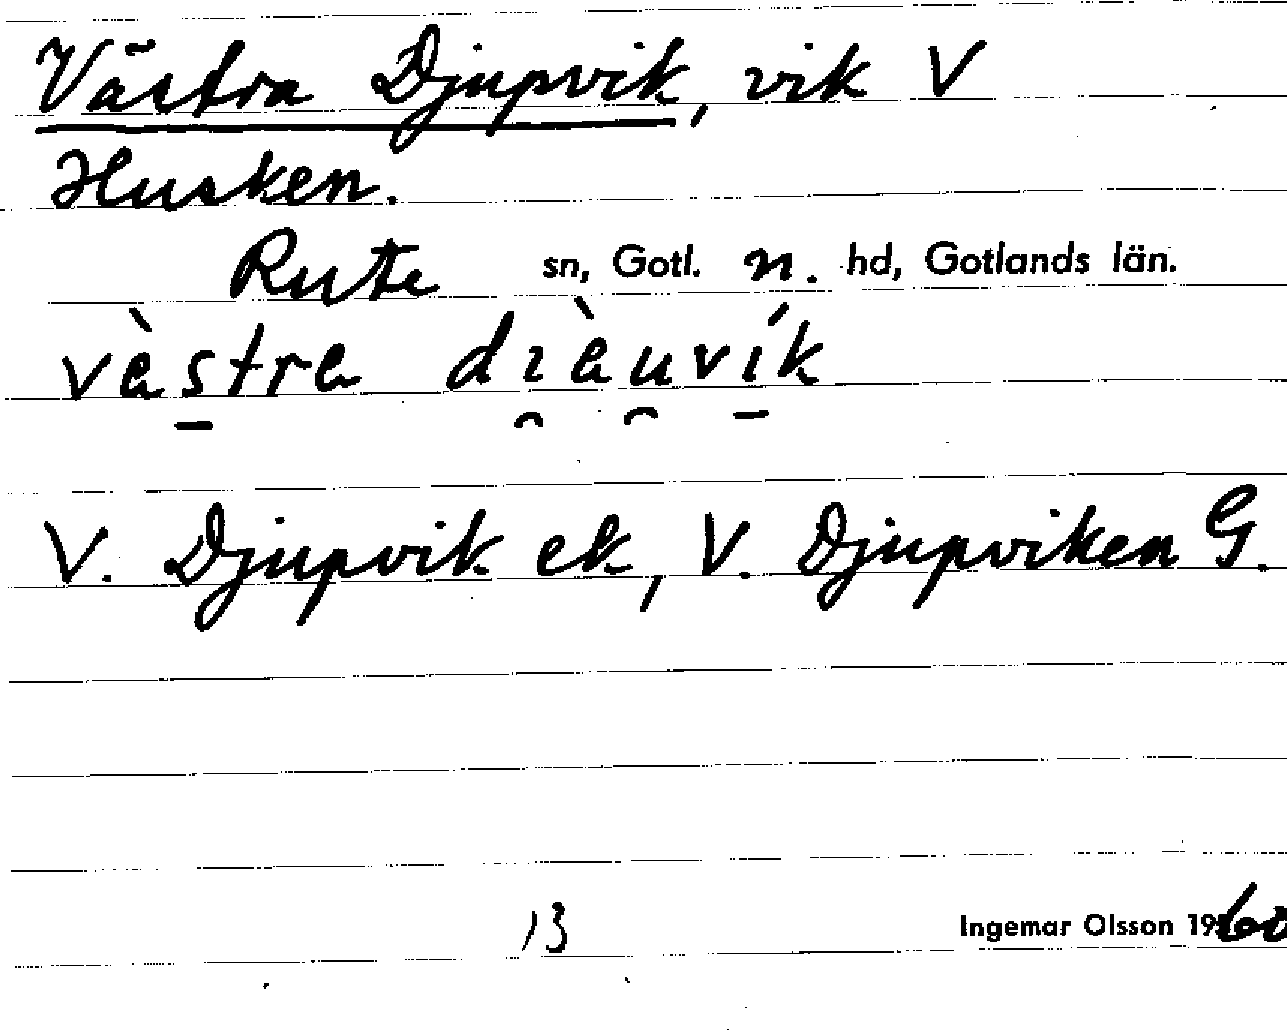 Västra Djupvik, vik V
Husken.
Rute sn, Gotl. n. hd, Gotlands län.
vèstra dı̯èu̯vík
V. Djupvik ek, V. Djupviken G.
13
Ingemar Olsson 1960